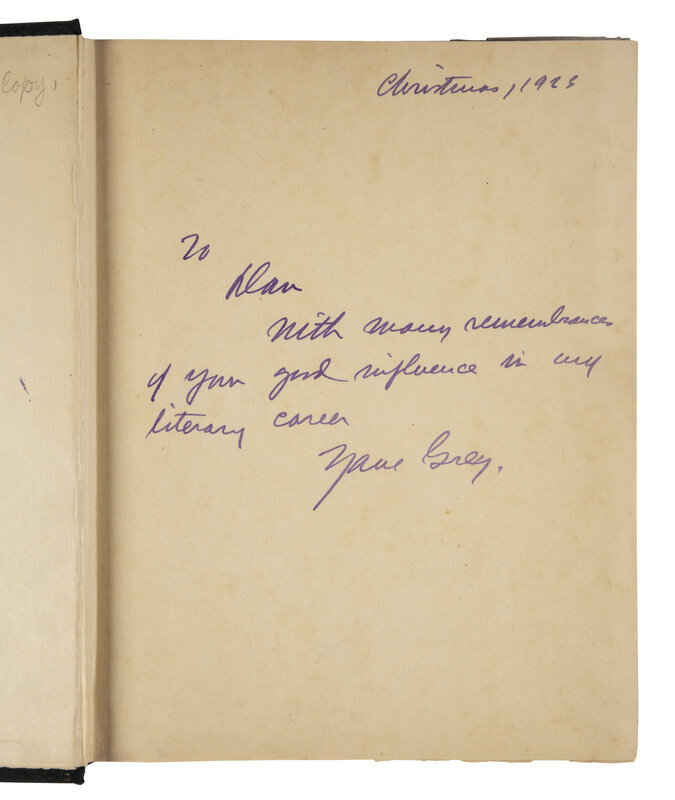 Copy,
Christmas,
To
Dan
With many remembrances
of your good influence in my
literary career
Zane Grey.